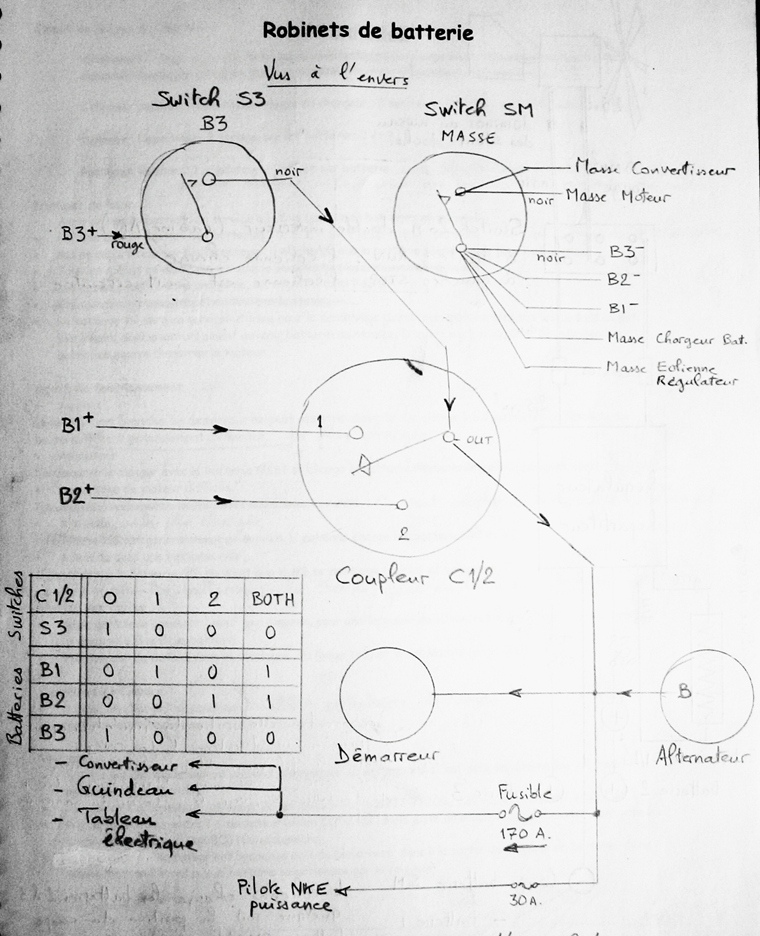 Robinets de batterie
Vus à l'envers
Switch S3
B3
Switch SM
MASSE
noir
B3+
rouge
Masse Convertisseur
noir Masse Moteur
noir B3-
B2-
B1-
Masse Chargeur Bat.
Masse Eolienne
Régulateur
B1+
1
OUT
B2+
2
Coupleur C1/2
Switches
C 1/2 0 1 2 BOTH
S3 1 0 0 0
Batteries
B1 0 1 0 1
B2 0 0 1 1
B3 1 0 0 0
B
Démarreur
Alternateur
- Convertisseur
- Guindeau
- Tableau
électrique
Fusible
170 A.
Pilote NKE
puissance
30A.